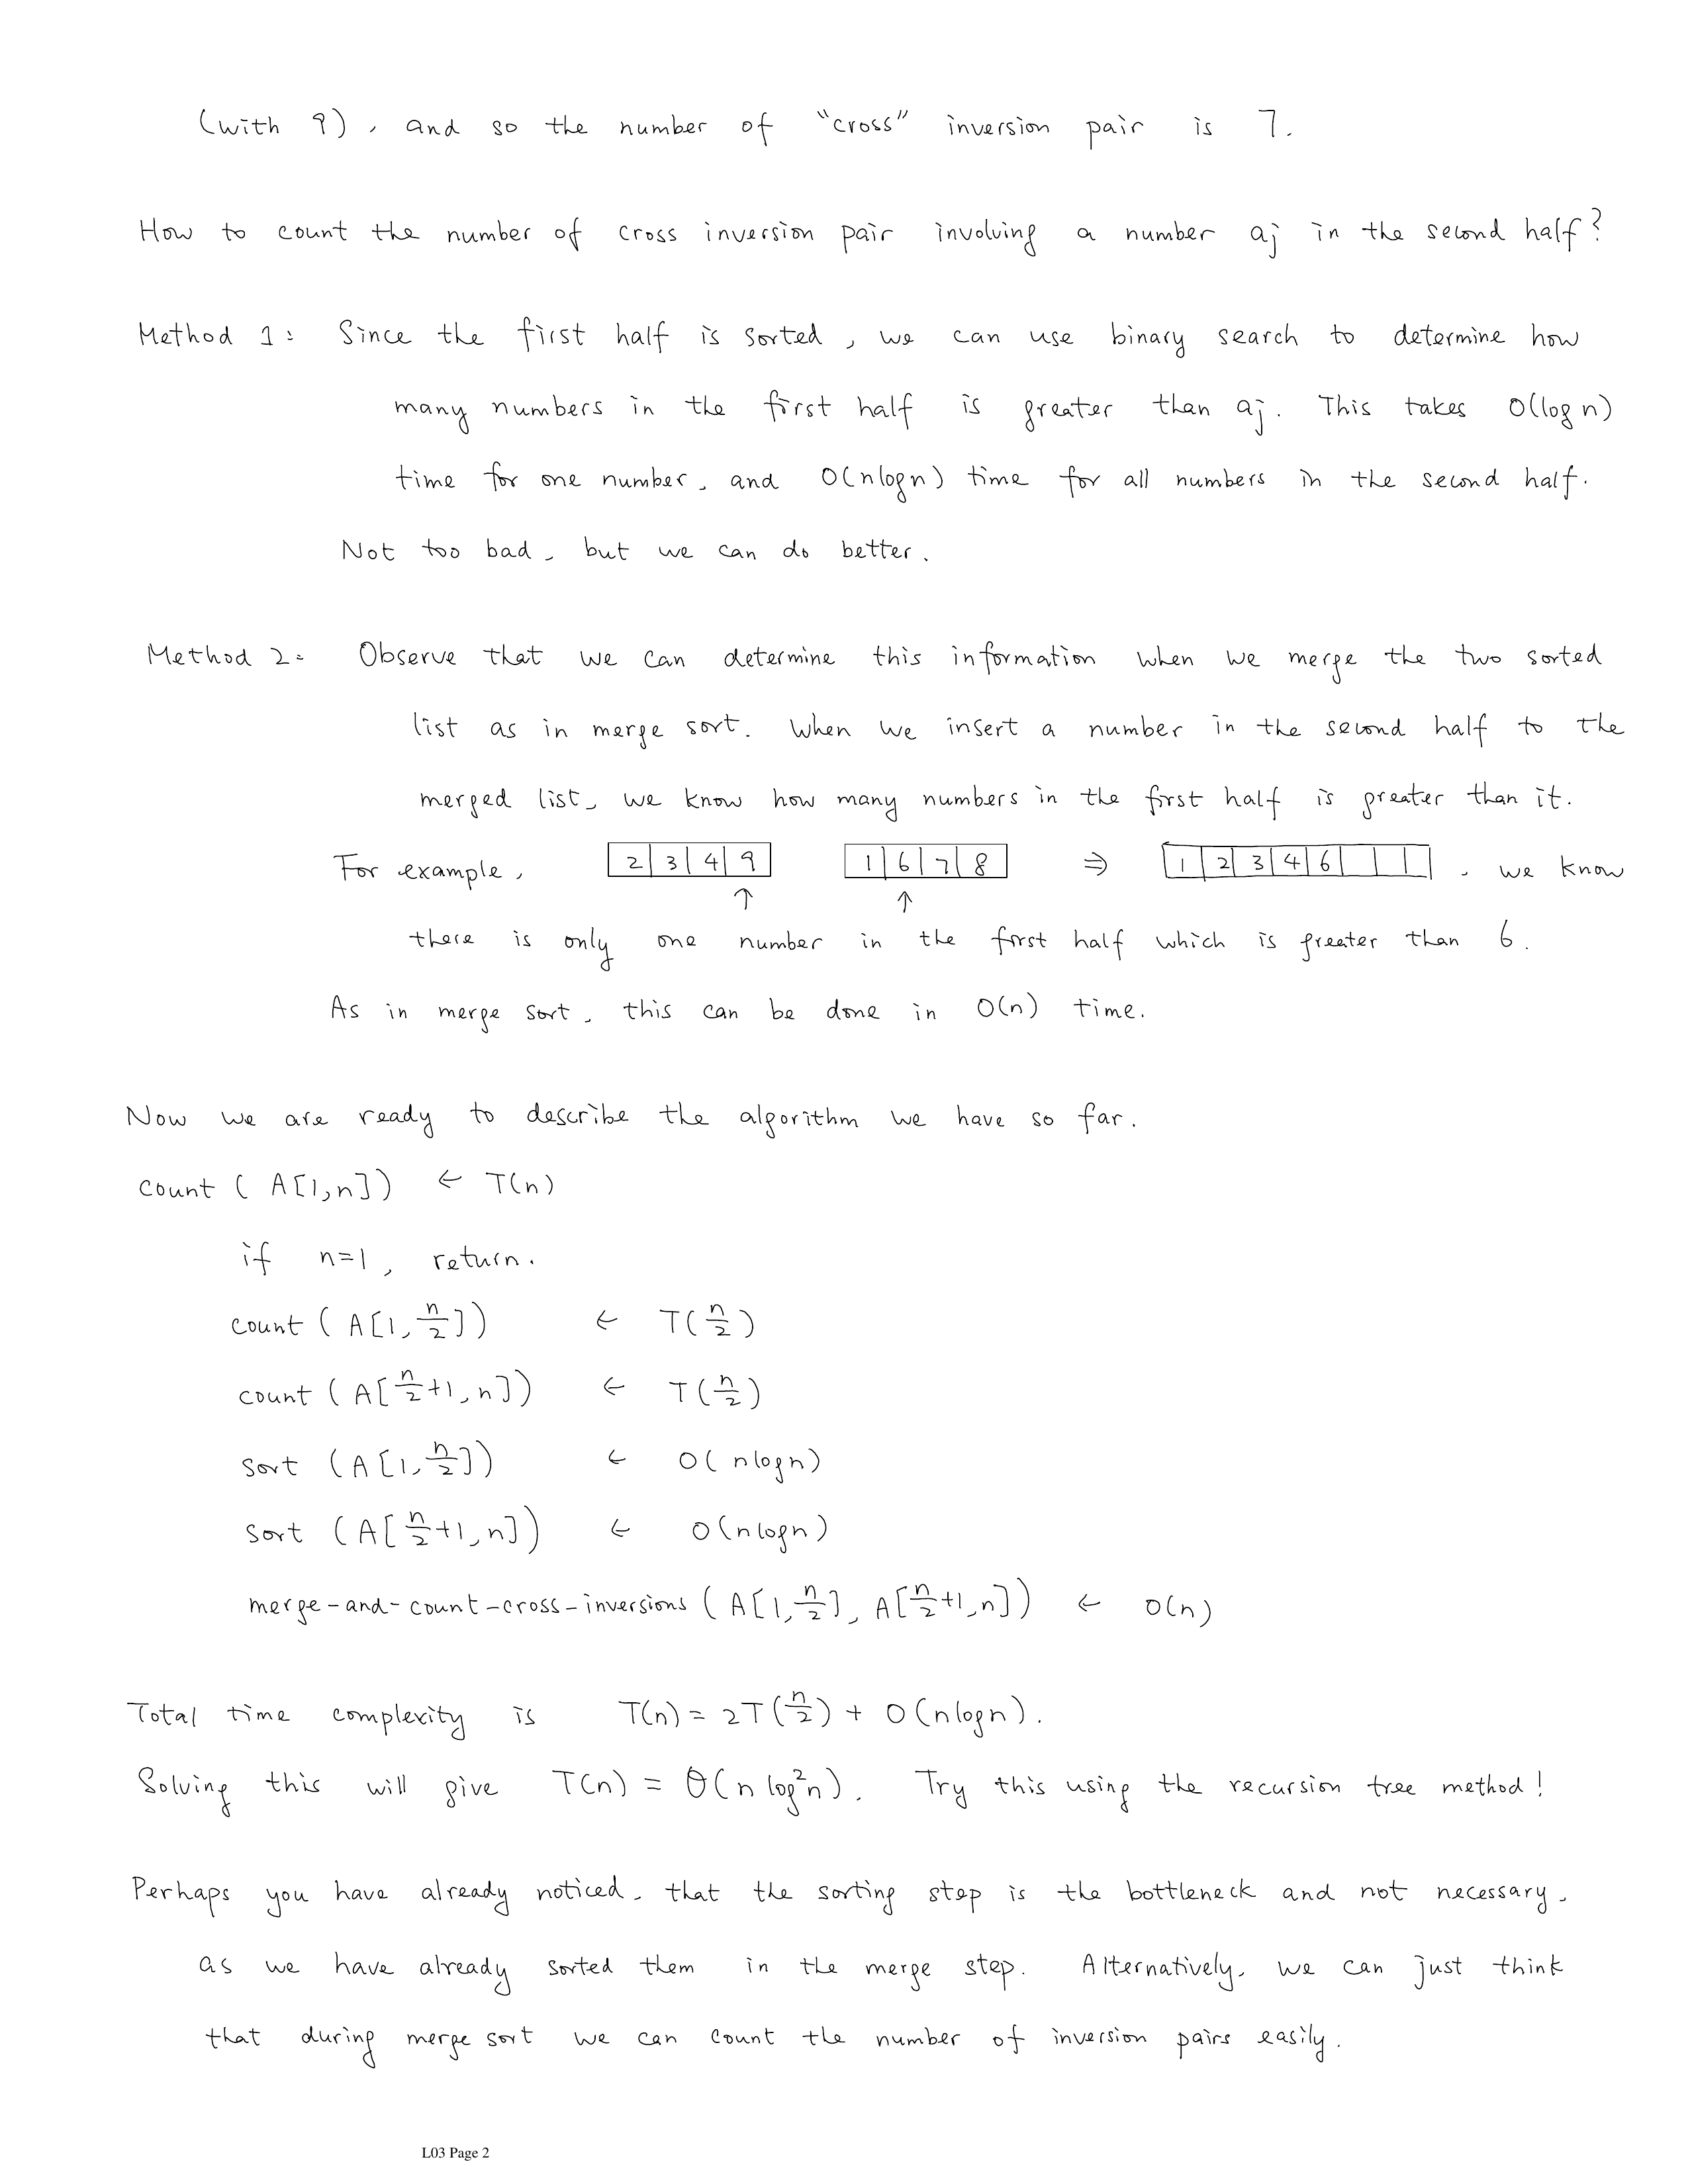 (with 9), and so the number of "cross" inversion pair is 7.
How to count the number of cross inversion pair involving a number aj in the second half?
Method 1: Since the first half is sorted, we can use binary search to determine how
many numbers in the first half is greater than aj. This takes O(log n)
time for one number, and O(nlogn) time for all numbers in the second half.
Not too bad, but we can do better.
Method 2: Observe that we can determine this information when we merge the two sorted
list as in merge sort. When we insert a number in the second half to the
merged list, we know how many numbers in the first half is greater than it.
For example, 2 | 3 | 4 | 9    1 | 6 | 7 | 8 ⇒ 1 | 2 | 3 | 4 | 6 | | | , we know
↑ ↑
there is only one number in the first half which is greater than 6.
As in merge sort, this can be done in O(n) time.
Now we are ready to describe the algorithm we have so far.
count (A[1,n]) ← T(n)
if n=1, return.
count (A[1, n/2]) ← T(n/2)
count (A[n/2+1, n]) ← T(n/2)
sort (A[1, n/2]) ← O(nlogn)
sort (A[n/2+1, n]) ← O(nlogn)
merge-and-count-cross-inversions (A[1, n/2], A[n/2+1, n]) ← O(n)
Total time complexity is T(n) = 2T(n/2) + O(nlogn).
Solving this will give T(n) = Θ(n log²n). Try this using the recursion tree method!
Perhaps you have already noticed, that the sorting step is the bottleneck and not necessary,
as we have already sorted them in the merge step. Alternatively, we can just think
that during merge sort we can count the number of inversion pairs easily.
L03 Page 2